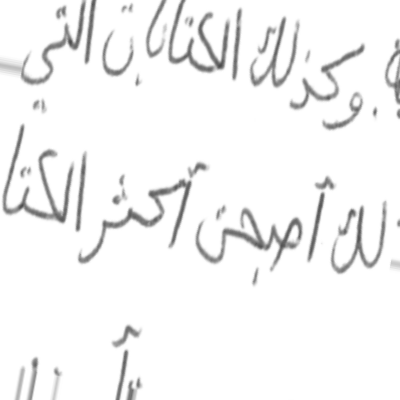 . وكذلك الكتابات التي
لك أصبحت أكثر الكتا